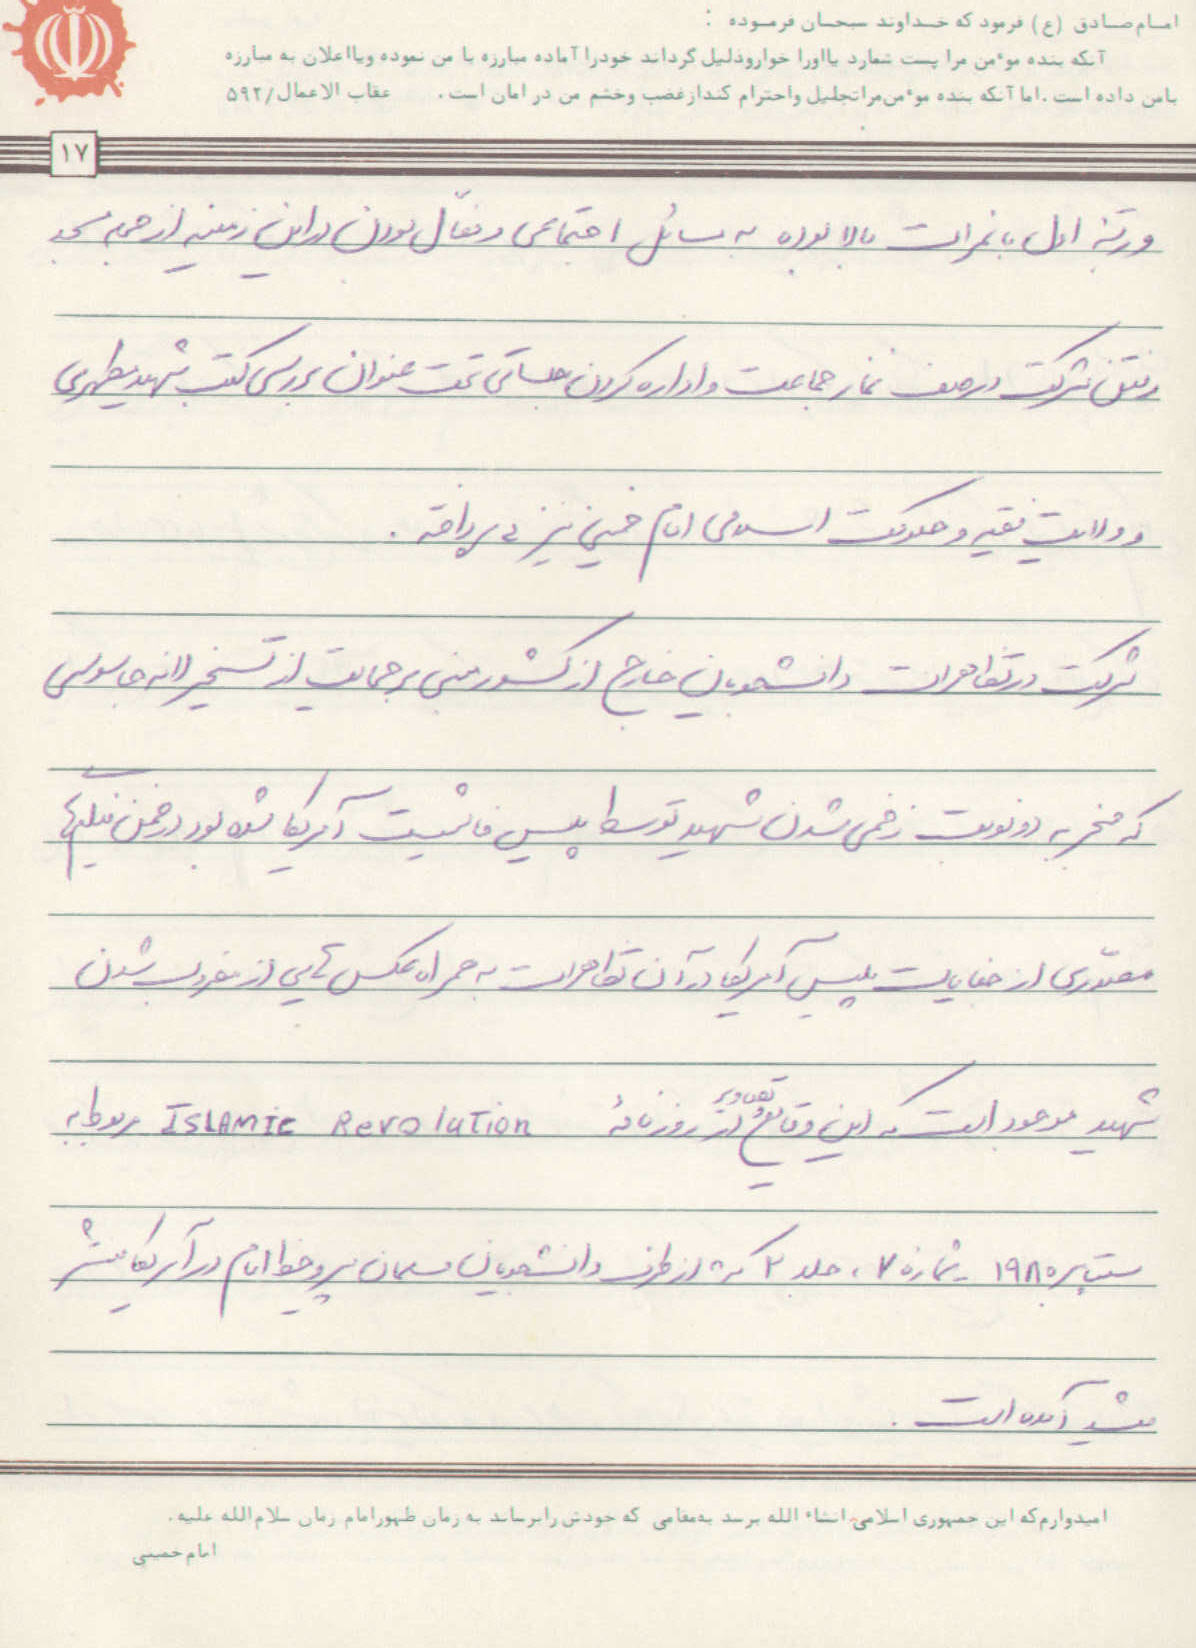 امام صادق (ع) فرمود که خداوند سبحان فرموده :
آنکه بنده موءمن مرا پست شمارد یااورا خواروذلیل گرداند خودرا آماده مبارزه با من نموده ویااعلان به مبارزه
بامن داده است .اما آنکه بنده موءمن‌مراتجلیل واحترام کندازغضب وخشم من در امان است . عقاب الاعمال/۵۹۲
۱۷
و رتبه اول با نمرات بالا بوده به مسائل اجتماعی و فعّال بودن در این زمینه از جمله مسجد
رفتن شرکت در صف نماز جماعت و اداره کردن جلساتی تحت عنوان بررسی کتب شهید مطهری
و ولایت فقیه و حکومت اسلامی امام خمینی نیز می پرداخته .
شرکت در تظاهرات دانشجویان خارج از کشور مبنی بر حمایت از تسخیر لانه جاسوسی
که منجر به دو نوبت زخمی شدن شهید توسط پلیس فاشیست آمریکا شده بود در ضمن فیلمهای
مصّوری از جنایات پلیس آمریکا در آن تظاهرات به همراه عکس هایی از مضروب شدن
شهید موجود است که این وقایع و تصاویر از روزنامهٔ ISLAMIC Revolution مربوط به
سپتامبر ۱۹۸۰ شماره ۷ ، جلد ۲ که از طرف دانشجویان مسلمان پیرو خط امام در آمریکا منتشر
میشد آمده است .
امیدوارم‌که این جمهوری اسلامی انشاء الله برسد به‌مقامی که خودش رابرساند به زمان ظهورامام زمان سلام‌الله علیه .
امام خمینی